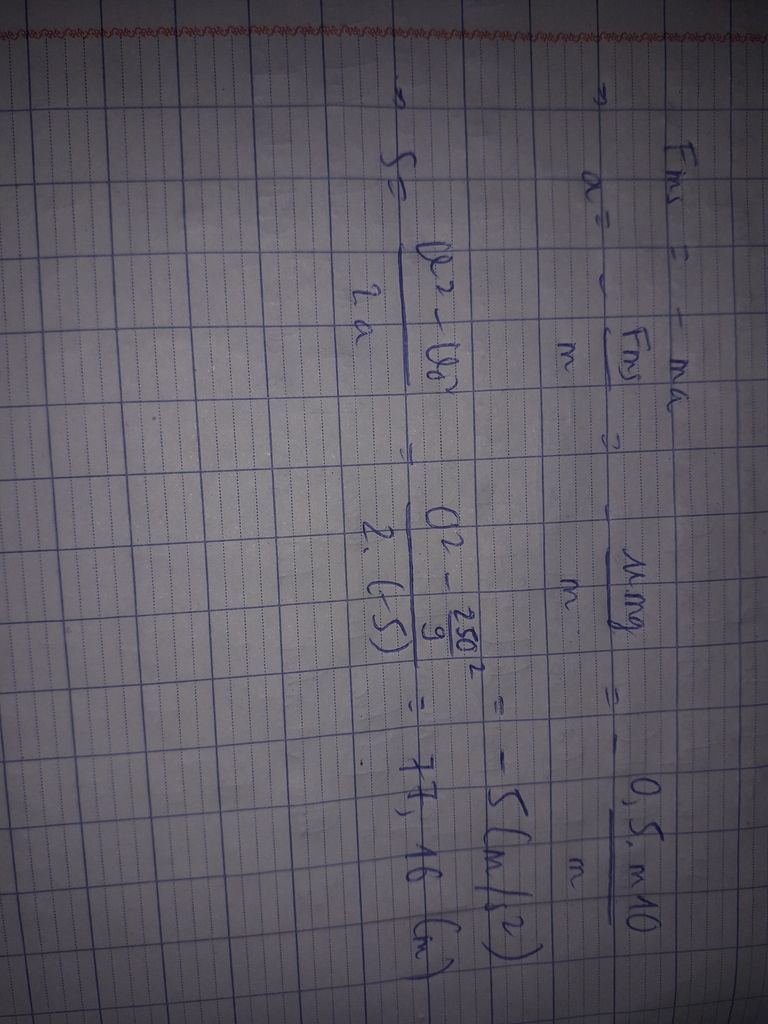 Fms = - ma
=> a = - Fms/m = - μ.mg/m = - 0,5.m10/m
= - 5 (m/s²)
=> S = (v² - v₀²)/(2a) = (0² - 250/9 ²)/(2.(-5)) = 77,16 (m)